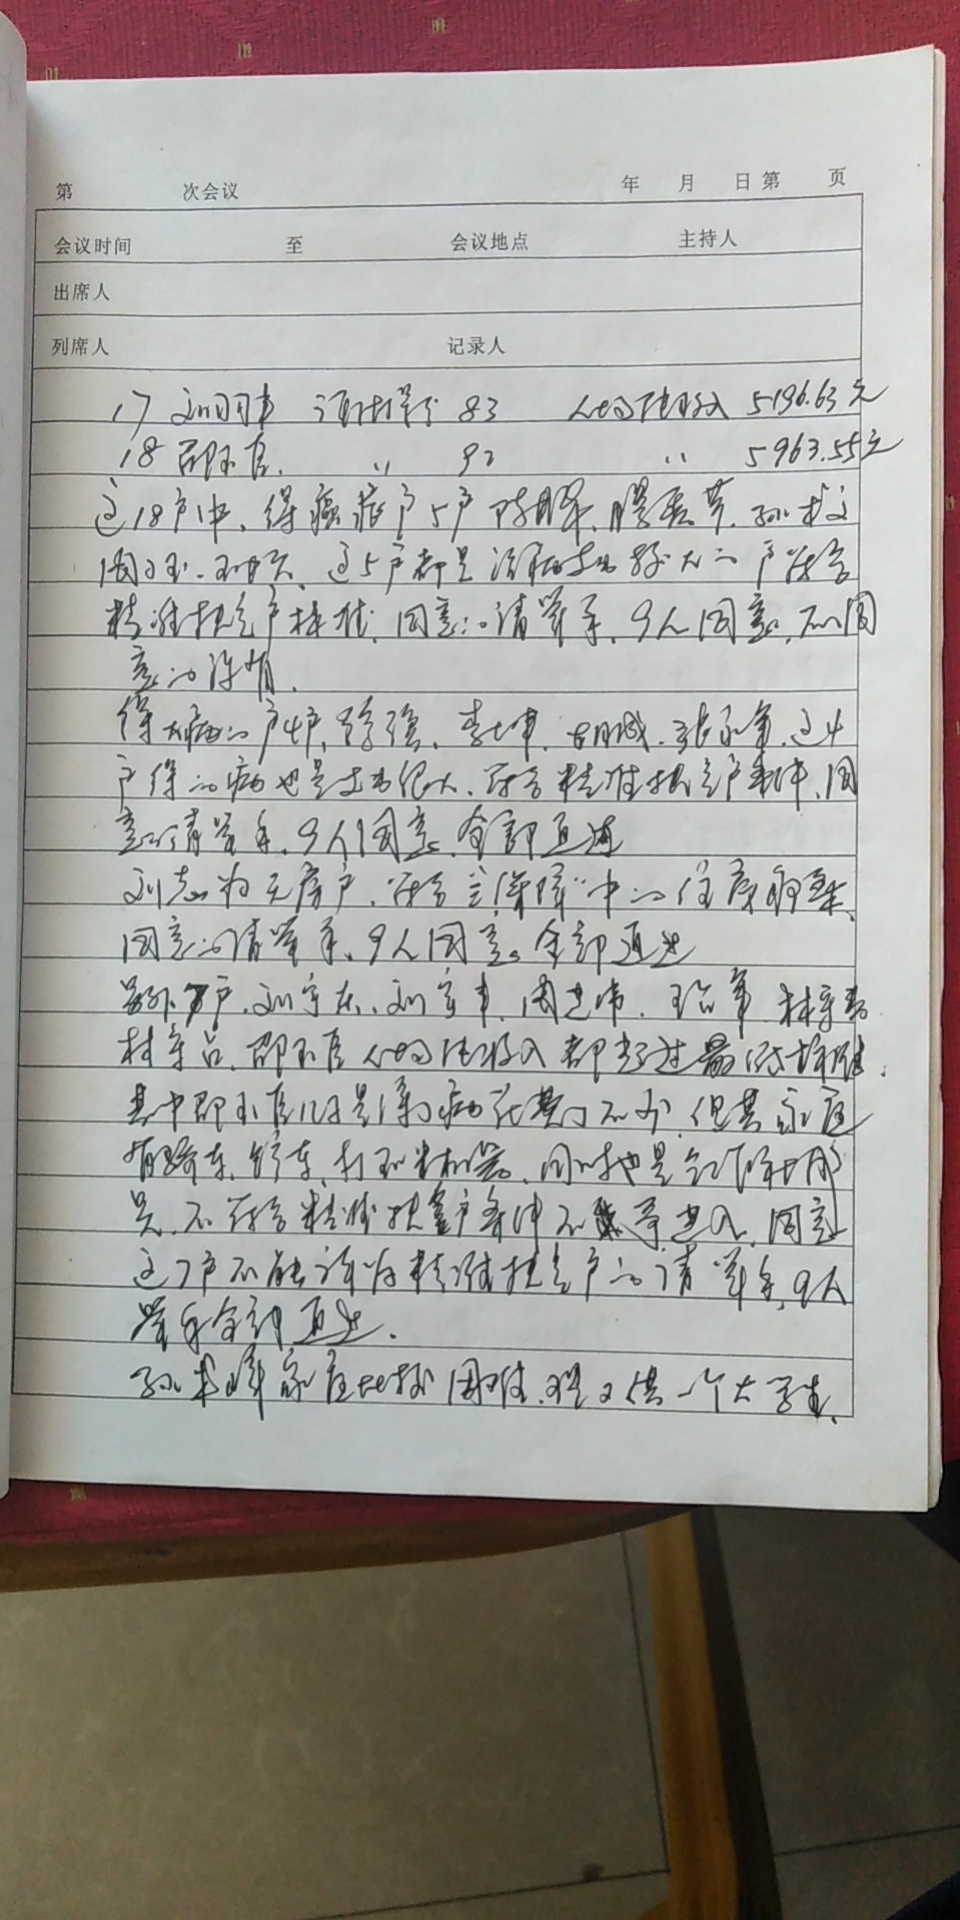 第 次会议 年 月 日 第 页
会议时间 至 会议地点 主持人
出席人
列席人 记录人
17 刘 83 人均纯收入 5196.63元
18 邵玉臣 〃 92 〃 5963.55元
这18户中、得癌症户5户
这5户都是治病支出较大的户 符合
精准扶贫户标准、同意的请举手、9人同意、不同
意的没有.
得大病的户4户、李坤、张永军、这4
户得的病也是支出很大、符合精准扶贫户条件、同
意的请举手、9人同意、全部通过
刘志为无房户、符合三保障中的住房政策、
同意的请举手、9人同意。全部通过
另外7户、刘、刘、周
林守品、邵玉臣人均纯收入都超过最低标准、
其中邵玉臣儿子是病花费了不少、但其家庭
有轿车、铲车、打玉米机器、同时也是
员、不符合精准扶贫户条件不 进入、同意
这7户不能评为精准扶贫户的请举手、9人
举手全部通过.
孙家庭比较困难、现又供一个大学生、